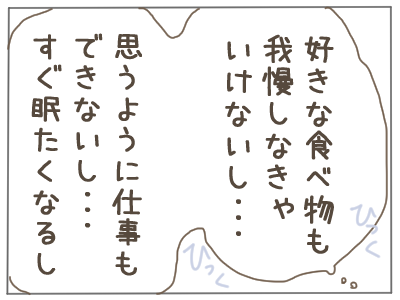 好きな食べ物も
我慢しなきゃ
いけないし・・・
思うように仕事も
できないし・・・
すぐ眠たくなるし
ひっく
ひっく